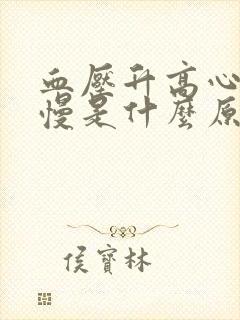 血壓升高心
慢是什麼原
侯寶林